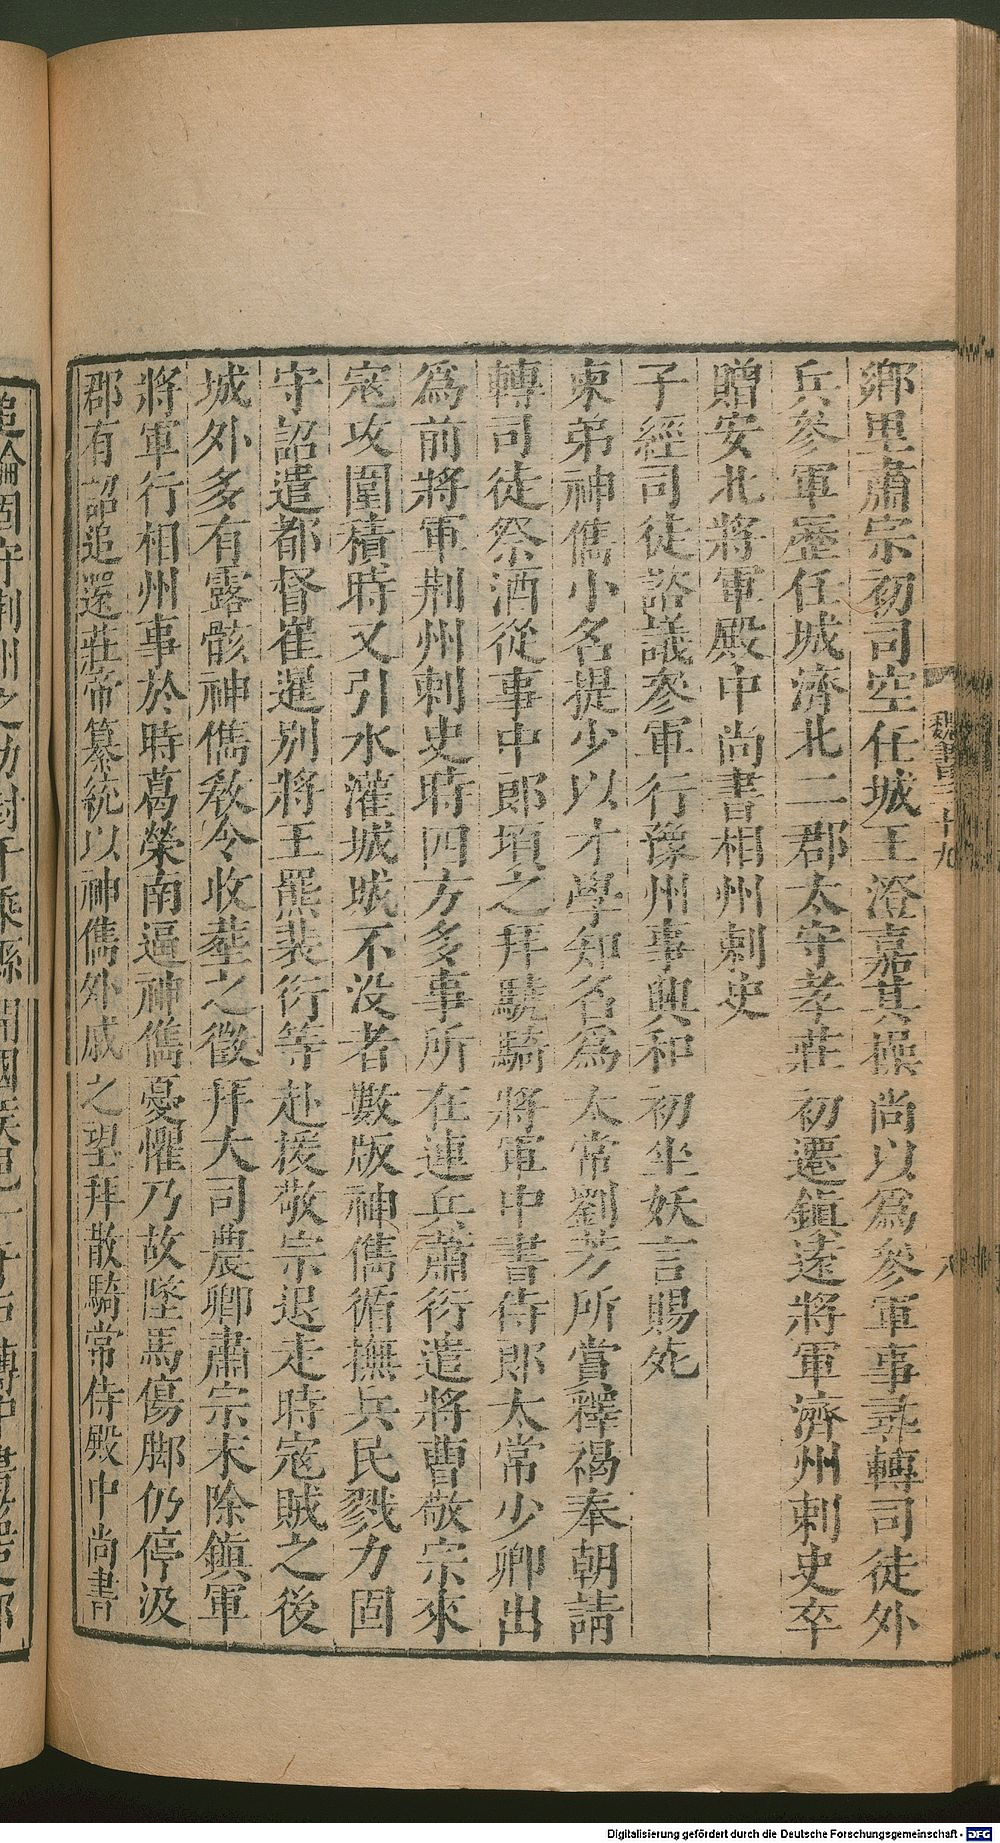 鄉里肅宗初司空任城王澄嘉其操尚以爲參軍事尋轉司徒外
兵參軍歷任城濟北二郡太守孝莊初遷鎮遠將軍濟州刺史卒
贈安北將軍殿中尚書相州刺史
子經司徒諮議參軍行豫州事興和初坐妖言賜死
柬弟神儁小名提少以才學知名爲太常劉芳所賞釋褐奉朝請
轉司徒祭酒從事中郎頃之拜驍騎將軍中書侍郎太常少卿出
爲前將軍荊州刺史時四方多事所在連兵蕭衍遣將曹敬宗來
寇攻圍積時又引水灌城城不没者數版神儁循撫兵民戮力固
守詔遣都督崔暹別將王羆裴衍等赴援敬宗退走時寇賊之後
城外多有露骸神儁教令收葬之徵拜大司農卿肅宗末除鎮軍
將軍行相州事於時葛榮南逼神儁憂懼乃故墜馬傷脚仍停汲
郡有詔追還莊帝纂統以神儁外戚之望拜散騎常侍殿中尚書
魏書三十九
八
Digitalisierung gefördert durch die Deutsche Forschungsgemeinschaft - DFG